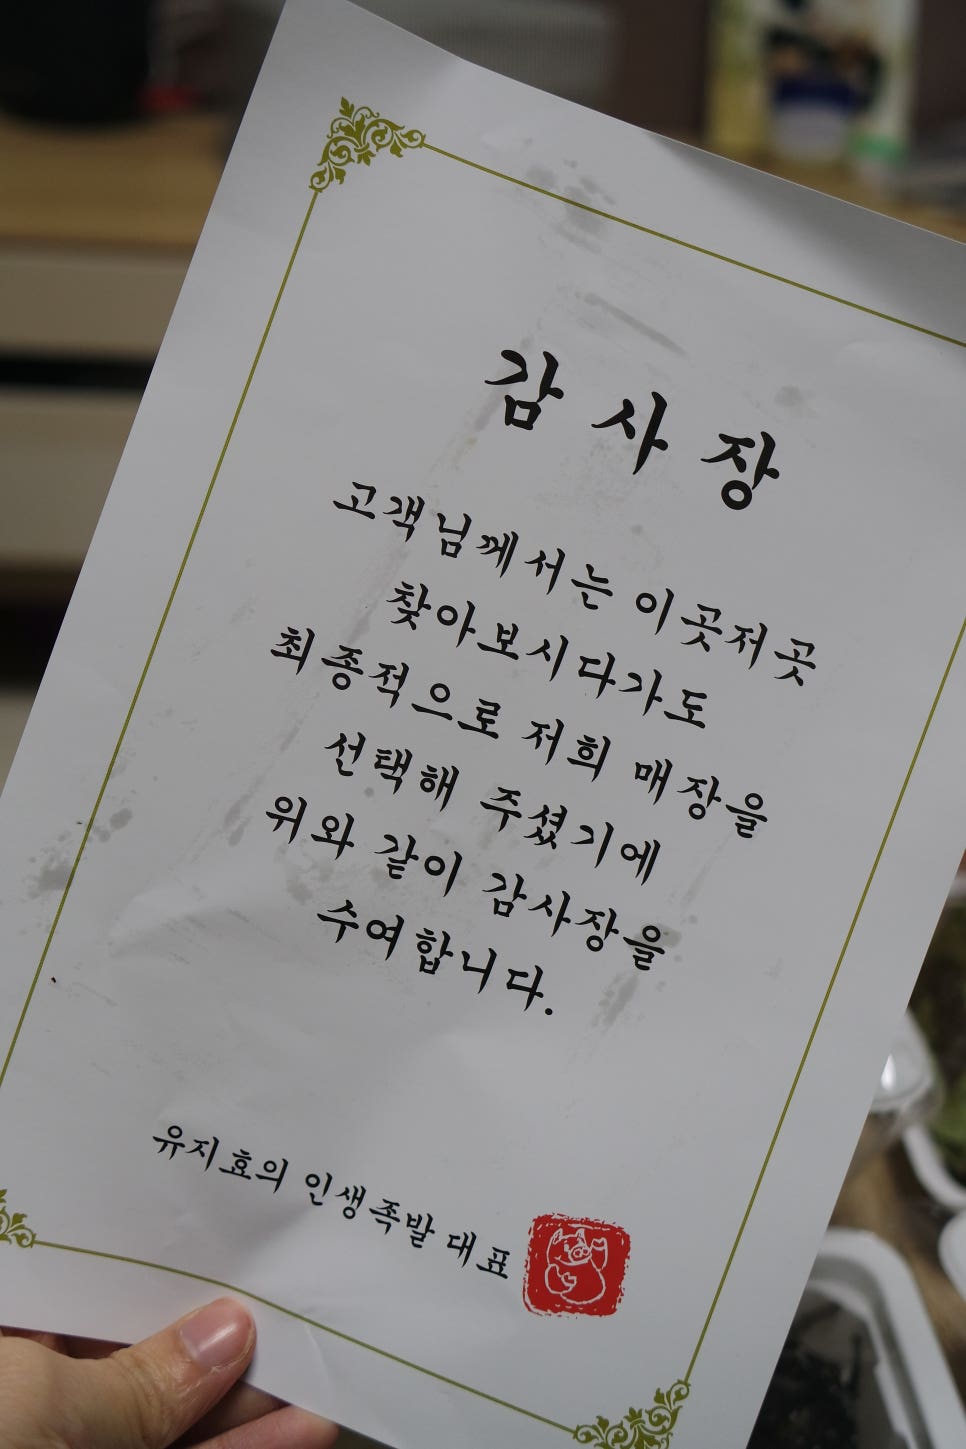 감사장
고객님께서는 이곳저곳
찾아보시다가도
최종적으로 저희 매장을
선택해 주셨기에
위와 같이 감사장을
수여합니다.
유지효의 인생족발 대표